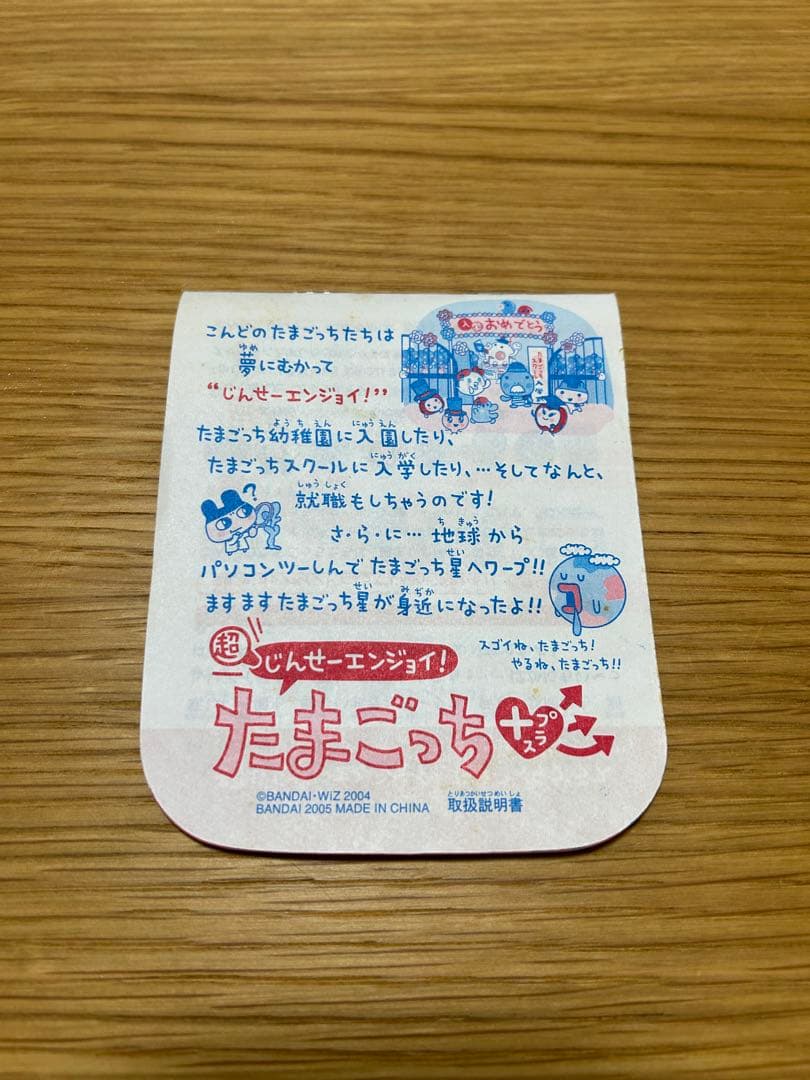 入園おめでとう
こんどのたまごっちたちは
夢にむかって
“じんせーエンジョイ！”
たまごっち幼稚園に入園したり、
たまごっちスクールに入学したり、…そしてなんと、
就職もしちゃうのです！
さ・ら・に…地球から
パソコンツーしんでたまごっち星へワープ!!
ますますたまごっち星が身近になったよ!!
スゴイね、たまごっち！
やるね、たまごっち!!
超じんせーエンジョイ！
たまごっち＋プラス
©BANDAI・WiZ 2004
BANDAI 2005 MADE IN CHINA
取扱説明書